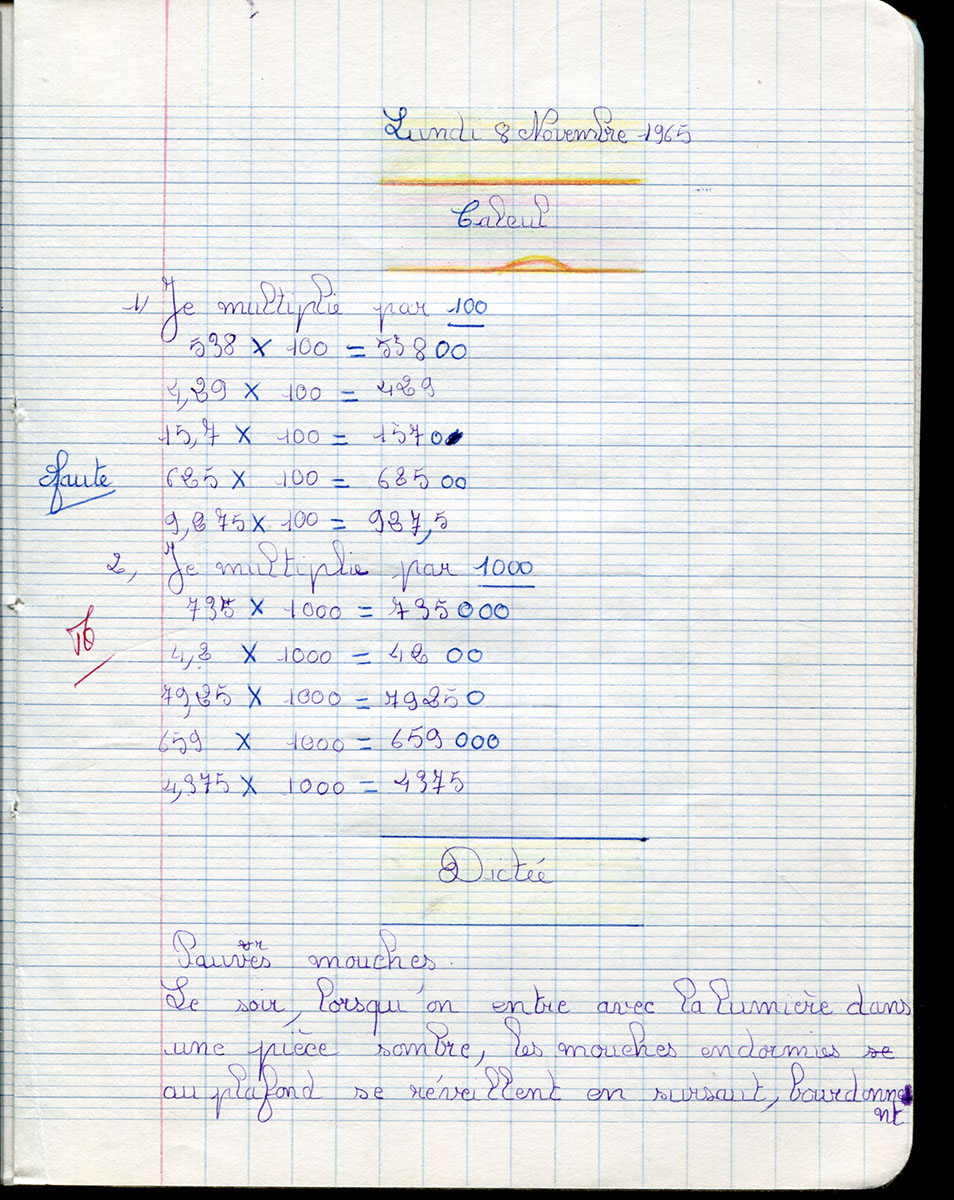 Lundi 8 Novembre 1965
Calcul
1) Je multiplie par 100
538 × 100 = 53800
4,29 × 100 = 429
15,7 × 100 = 1570
faute
625 × 100 = 62500
9,275 × 100 = 927,5
2, Je multiplie par 1000
735 × 1000 = 735000
TB
4,2 × 1000 = 4200
79,25 × 1000 = 79250
659 × 1000 = 659000
4,375 × 1000 = 4375
Dictée
Pauvres mouches.
Le soir, lorsqu'on entre avec la lumière dans
une pièce sombre, les mouches endormies se
au plafond se réveillent en sursaut, bourdonne
nt